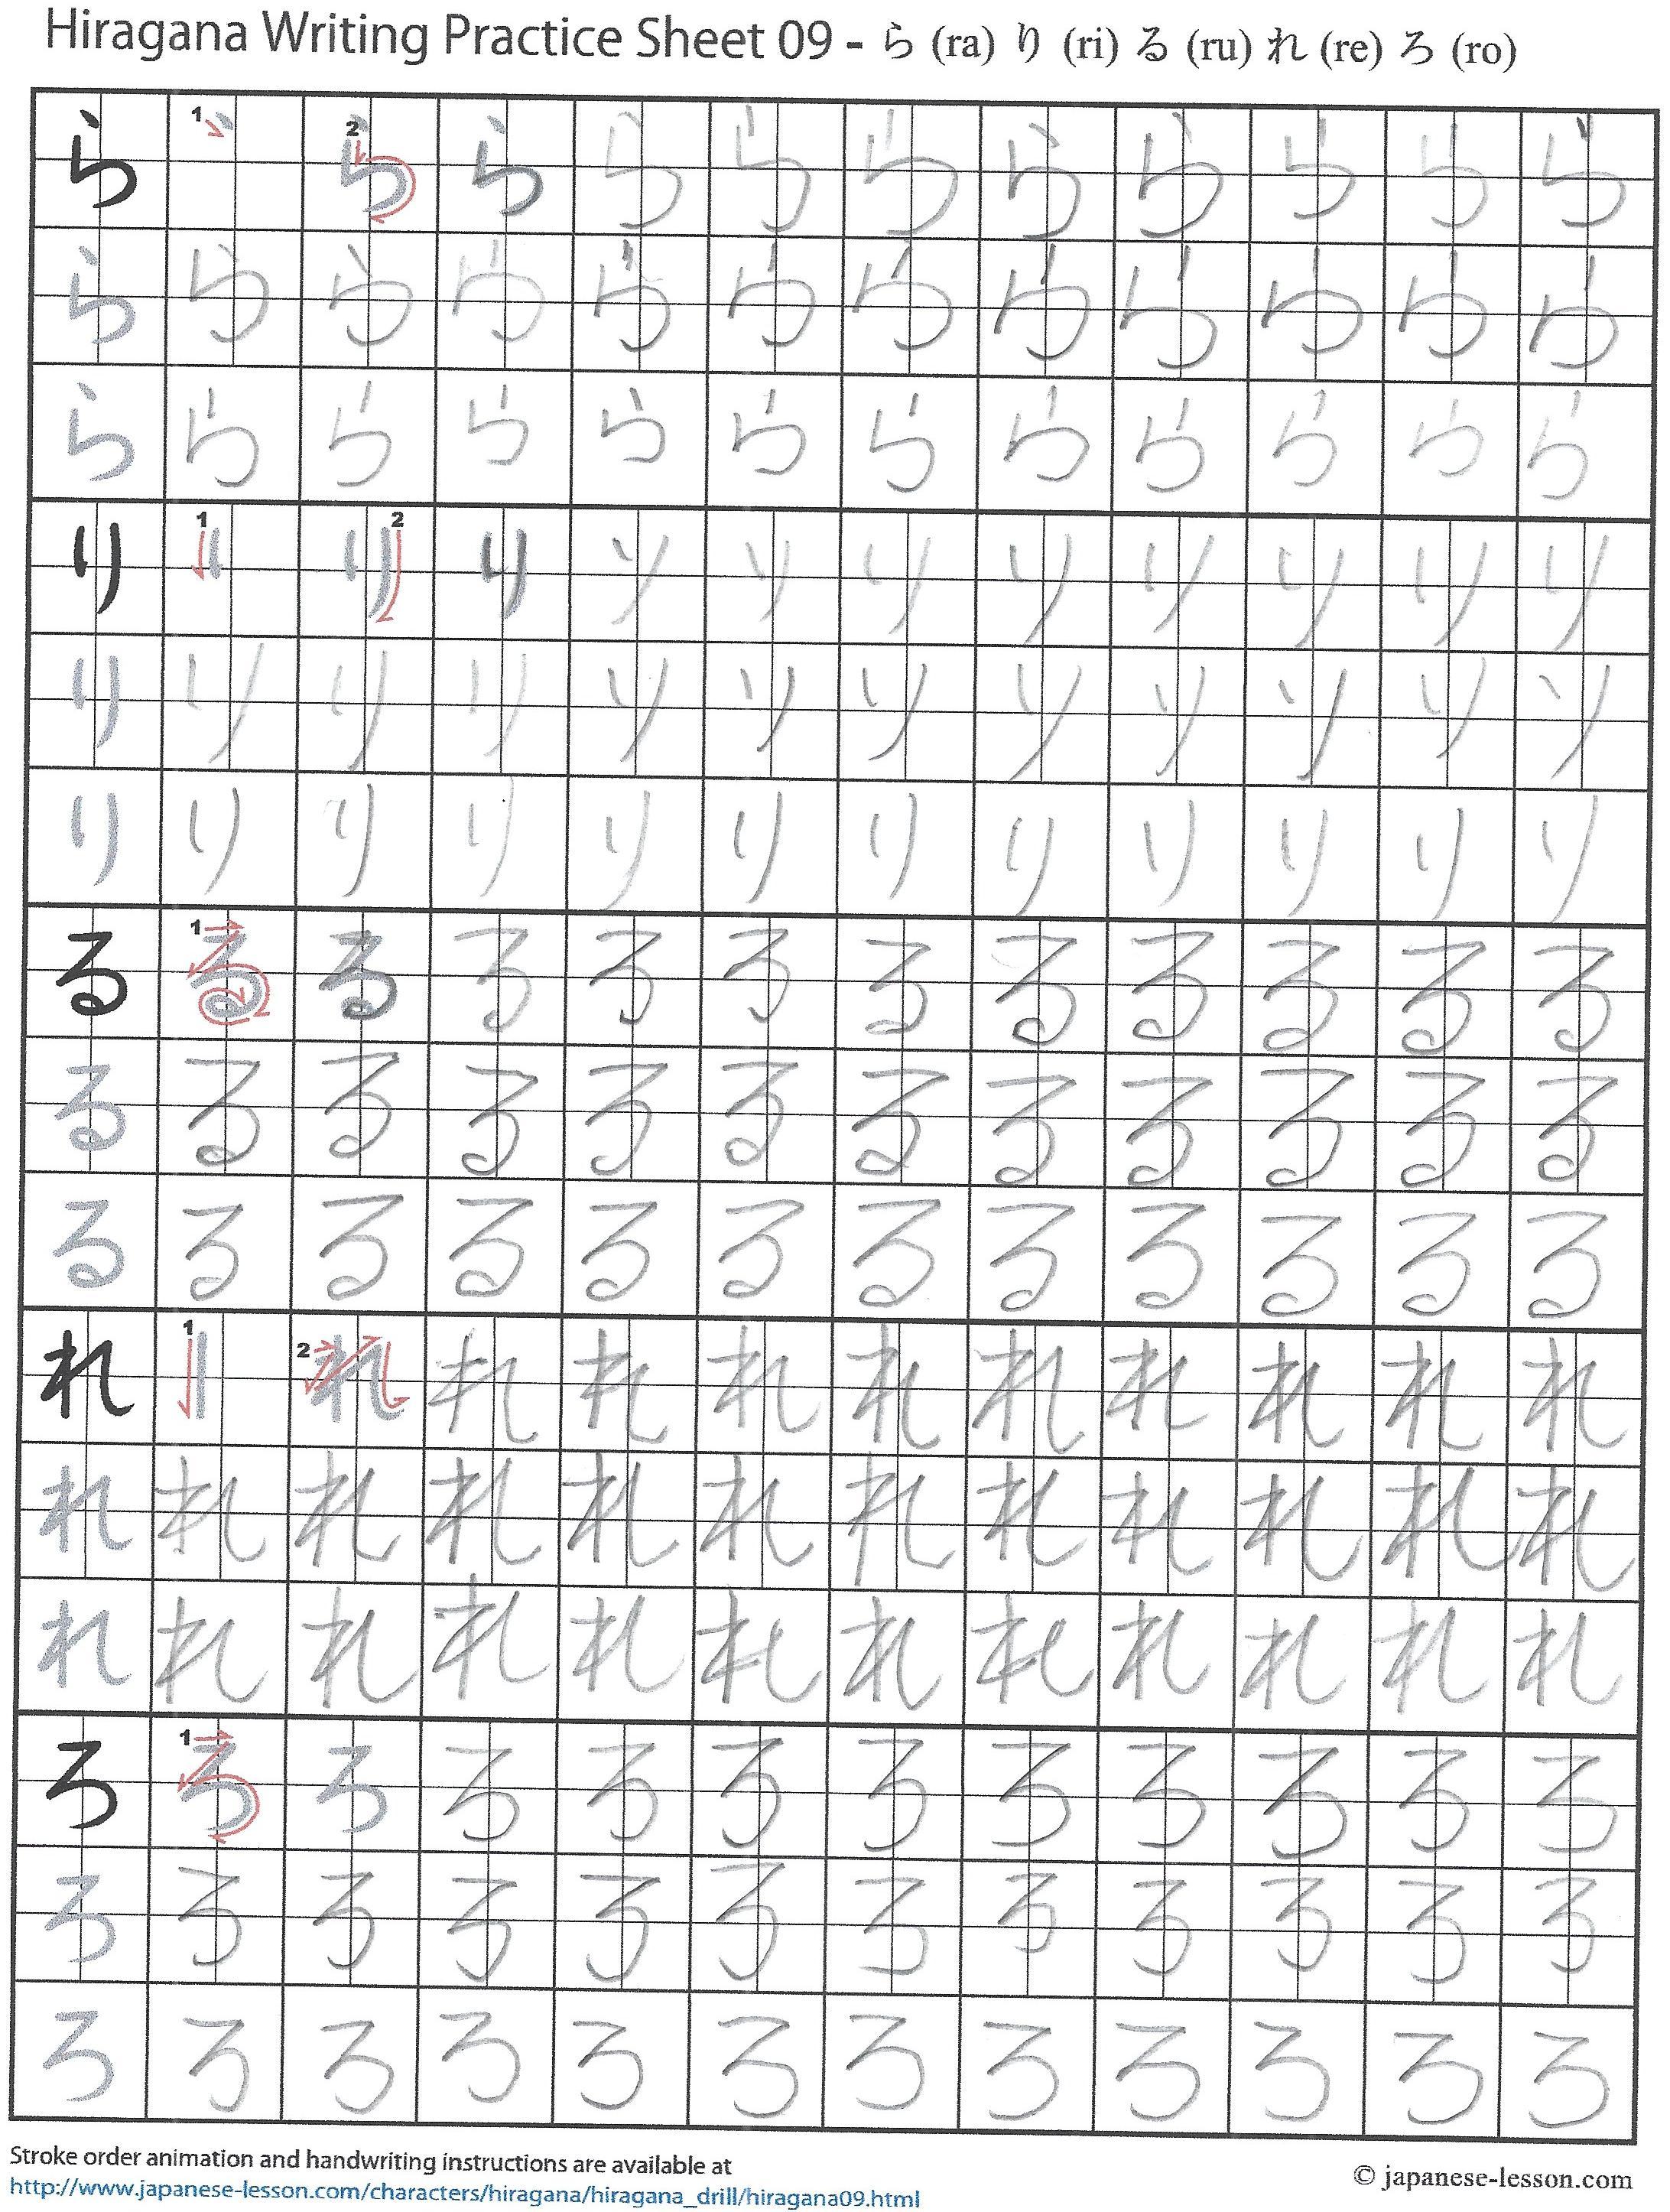 Hiragana Writing Practice Sheet 09 - ら (ra) り (ri) る (ru) れ (re) ろ (ro)
ら 1 2 ら ら ら ら ら ら ら ら ら ら
ら ら ら ら ら ら ら ら ら ら ら ら
ら ら ら ら ら ら ら ら ら ら ら ら
り 1 り 2 り り り り り り り り り
り り り り り り り り り り り り
り り り り り り り り り り り り
る 1 る る る る る る る る る る る
る る る る る る る る る る る る
る る る る る る る る る る る る
れ 1 2 れ れ れ れ れ れ れ れ れ れ
れ れ れ れ れ れ れ れ れ れ れ れ
れ れ れ れ れ れ れ れ れ れ れ れ
ろ 1 ろ ろ ろ ろ ろ ろ ろ ろ ろ ろ ろ
ろ ろ ろ ろ ろ ろ ろ ろ ろ ろ ろ ろ
ろ ろ ろ ろ ろ ろ ろ ろ ろ ろ ろ ろ
Stroke order animation and handwriting instructions are available at
http://www.japanese-lesson.com/characters/hiragana/hiragana_drill/hiragana09.html
© japanese-lesson.com